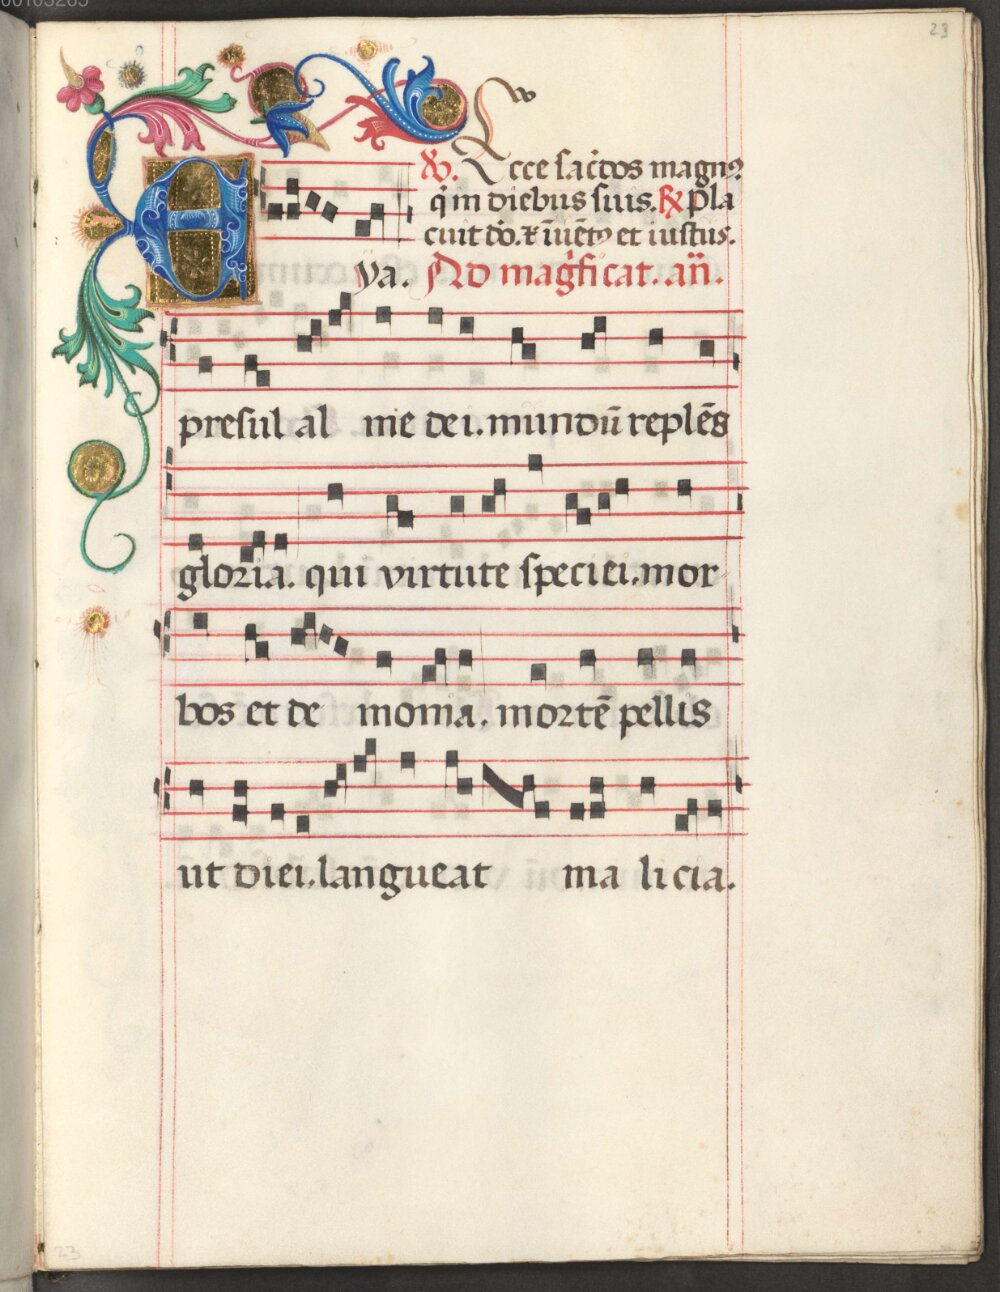 00103265
23
℣. Ecce sac̄dos magnꝰ
q̇ in diebus suis. ℟ Pla
cuit dō. ⁊ īuētꝰ et iustus.
E ya. Ad mag̅ficat. an̄.
presul al me dei. mundū replēs
gloria. qui virtute speciei. mor
bos et de monia. mortē pellis
ut diei. langueat ma licia.
23